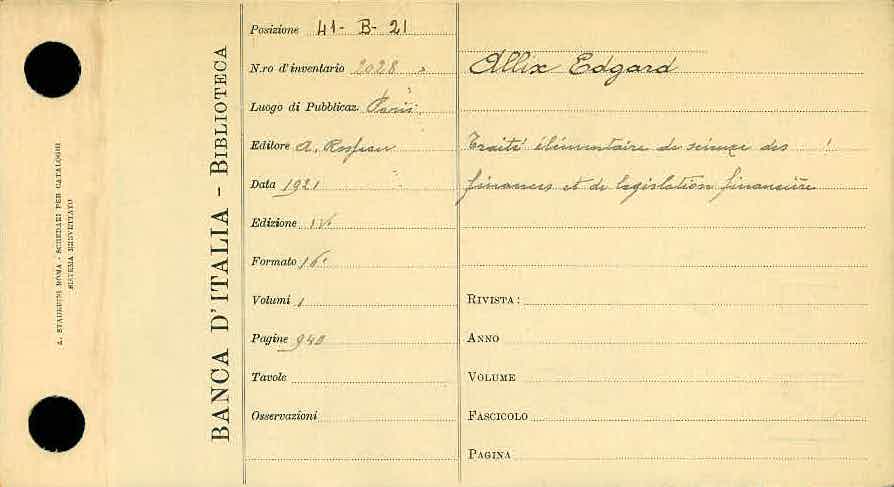 A. STADERINI ROMA - SCHEDARI PER CATALOGHI
SISTEMA BREVETTATO
BANCA D'ITALIA - BIBLIOTECA
Posizione 41- B- 21
N.ro d'inventario 2028
Luogo di Pubblicaz. Paris
Editore A.
Data 1921
Edizione IVe
Formato 16°
Volumi 1
Pagine 940
Tavole
Osservazioni
Allix Edgard
Traité élémentaire de science des
finances et de legislation financière
RIVISTA:
ANNO
VOLUME
FASCICOLO
PAGINA